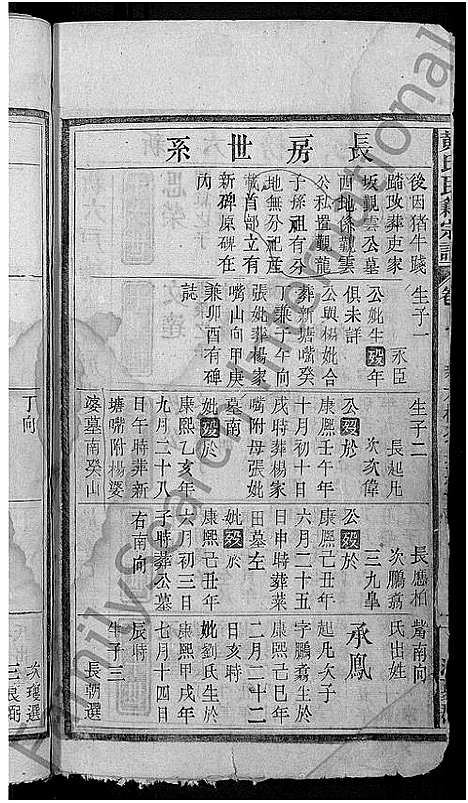 長房世系
後因猪牛踐
踏攻葬吏家
坂觀雲公墓
西地係觀雲
公私置觀龍
子孫祖有分
地無分祀産
載首部立有
新碑原碑在
内
生子一
永臣
公妣生殁年
俱未詳
公與楊妣合
葬新塘嘴癸
丁兼子午向
張妣葬楊家
嘴山向甲庚
兼卯酉有碑
誌
生子二
長起凡
次次偉
公殁於
康熙壬午年
十月初十日
戌時葬楊家
嘴附母張妣
墓南
妣殁於
康熙乙亥年
九月二十八
日午時葬新
塘嘴附楊婆
婆墓南癸山
丁向
長鵬柏
次鵬翥
三九皐
公殁於
康熙己丑年
六月二十五
日申時葬菜
田墓左
妣殁於
康熙己丑年
六月初三日
子時葬公墓
右南向
嘴南向
氏出姓
承鳳
起凡次子
字鵬翥生於
康熙己巳年
二月二十二
日亥時
妣劉氏生於
康熙甲戌年
七月十四日
辰時
生子三
長朝選
次瓊選
FamilySearch International